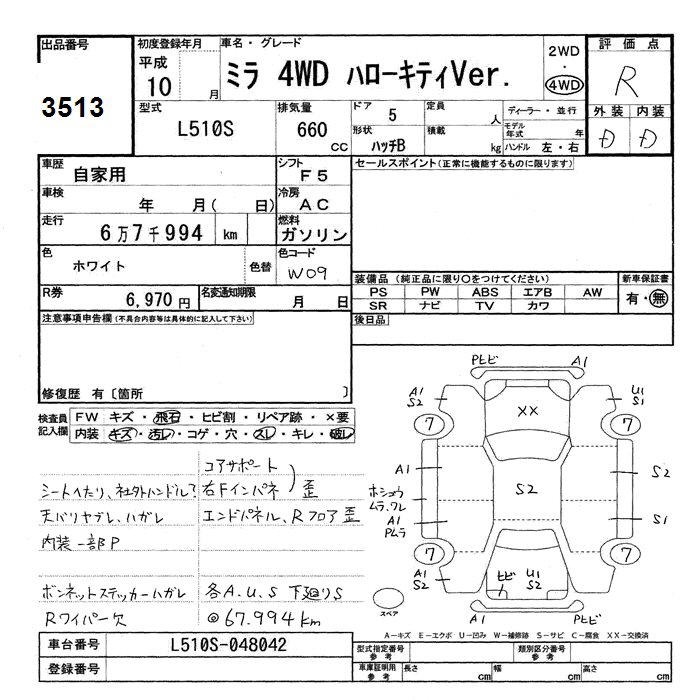 出品番号
3513
初度登録年月
平成
10 月
車名・グレード
ミラ 4WD ハローキティVer.
2WD
・
4WD
評価点
R
外装 内装
D D
型式
L510S
排気量
660
CC
ドア 5
定員 人
形状 ハッチB
積載 kg
ディーラー・並行
モデル年式 年
ハンドル 左・右
車歴
自家用
シフト
F5
車検
年 月( 日)
冷房
AC
走行
6万7千994 km
燃料
ガソリン
色
ホワイト
色替
色コード
W09
R券
6,970円
名変通知期限
月 日
セールスポイント(正常に機能するものに限ります)
装備品 (純正品に限り〇をつけてください)
新車保証書
PS PW ABS エアB AW
SR ナビ TV カワ
有・無
後日品
注意事項申告欄(不具合内容等は具体的に記入して下さい)
修復歴 有〔箇所 〕
検査員
記入欄
FW キズ・飛石・ヒビ割・リペア跡・×要
内装 キズ・汚レ・コゲ・穴・スレ・キレ・破レ
コアサポート
シートヘたり、社外ハンドル?
右Fインパネ 歪
天バリヤブレ、ハガレ
エンドパネル、Rフロア歪
内装一部P
ボンネットステッカーハガレ
各A.U.S 下廻りS
Rワイパー欠
@67.994km
PヒビA1
A1
S2
U1
S1
XX
7
7
A1
S2
S2
ホシュウ
ムラ.ワレ
A1
Pムラ
S1
7
7
A1
S2
ヒビ
U1
S2
A1
S2
A1
Pヒビ
スペア
A－キズ E－エクボ U－凹み W－補修跡 S－サビ C－腐食 XX－交換済
車台番号
L510S-048042
登録番号
型式指定番号
参考
類別区分番号
参考
車庫証明用
参考
長さ cm
幅 cm
高さ cm